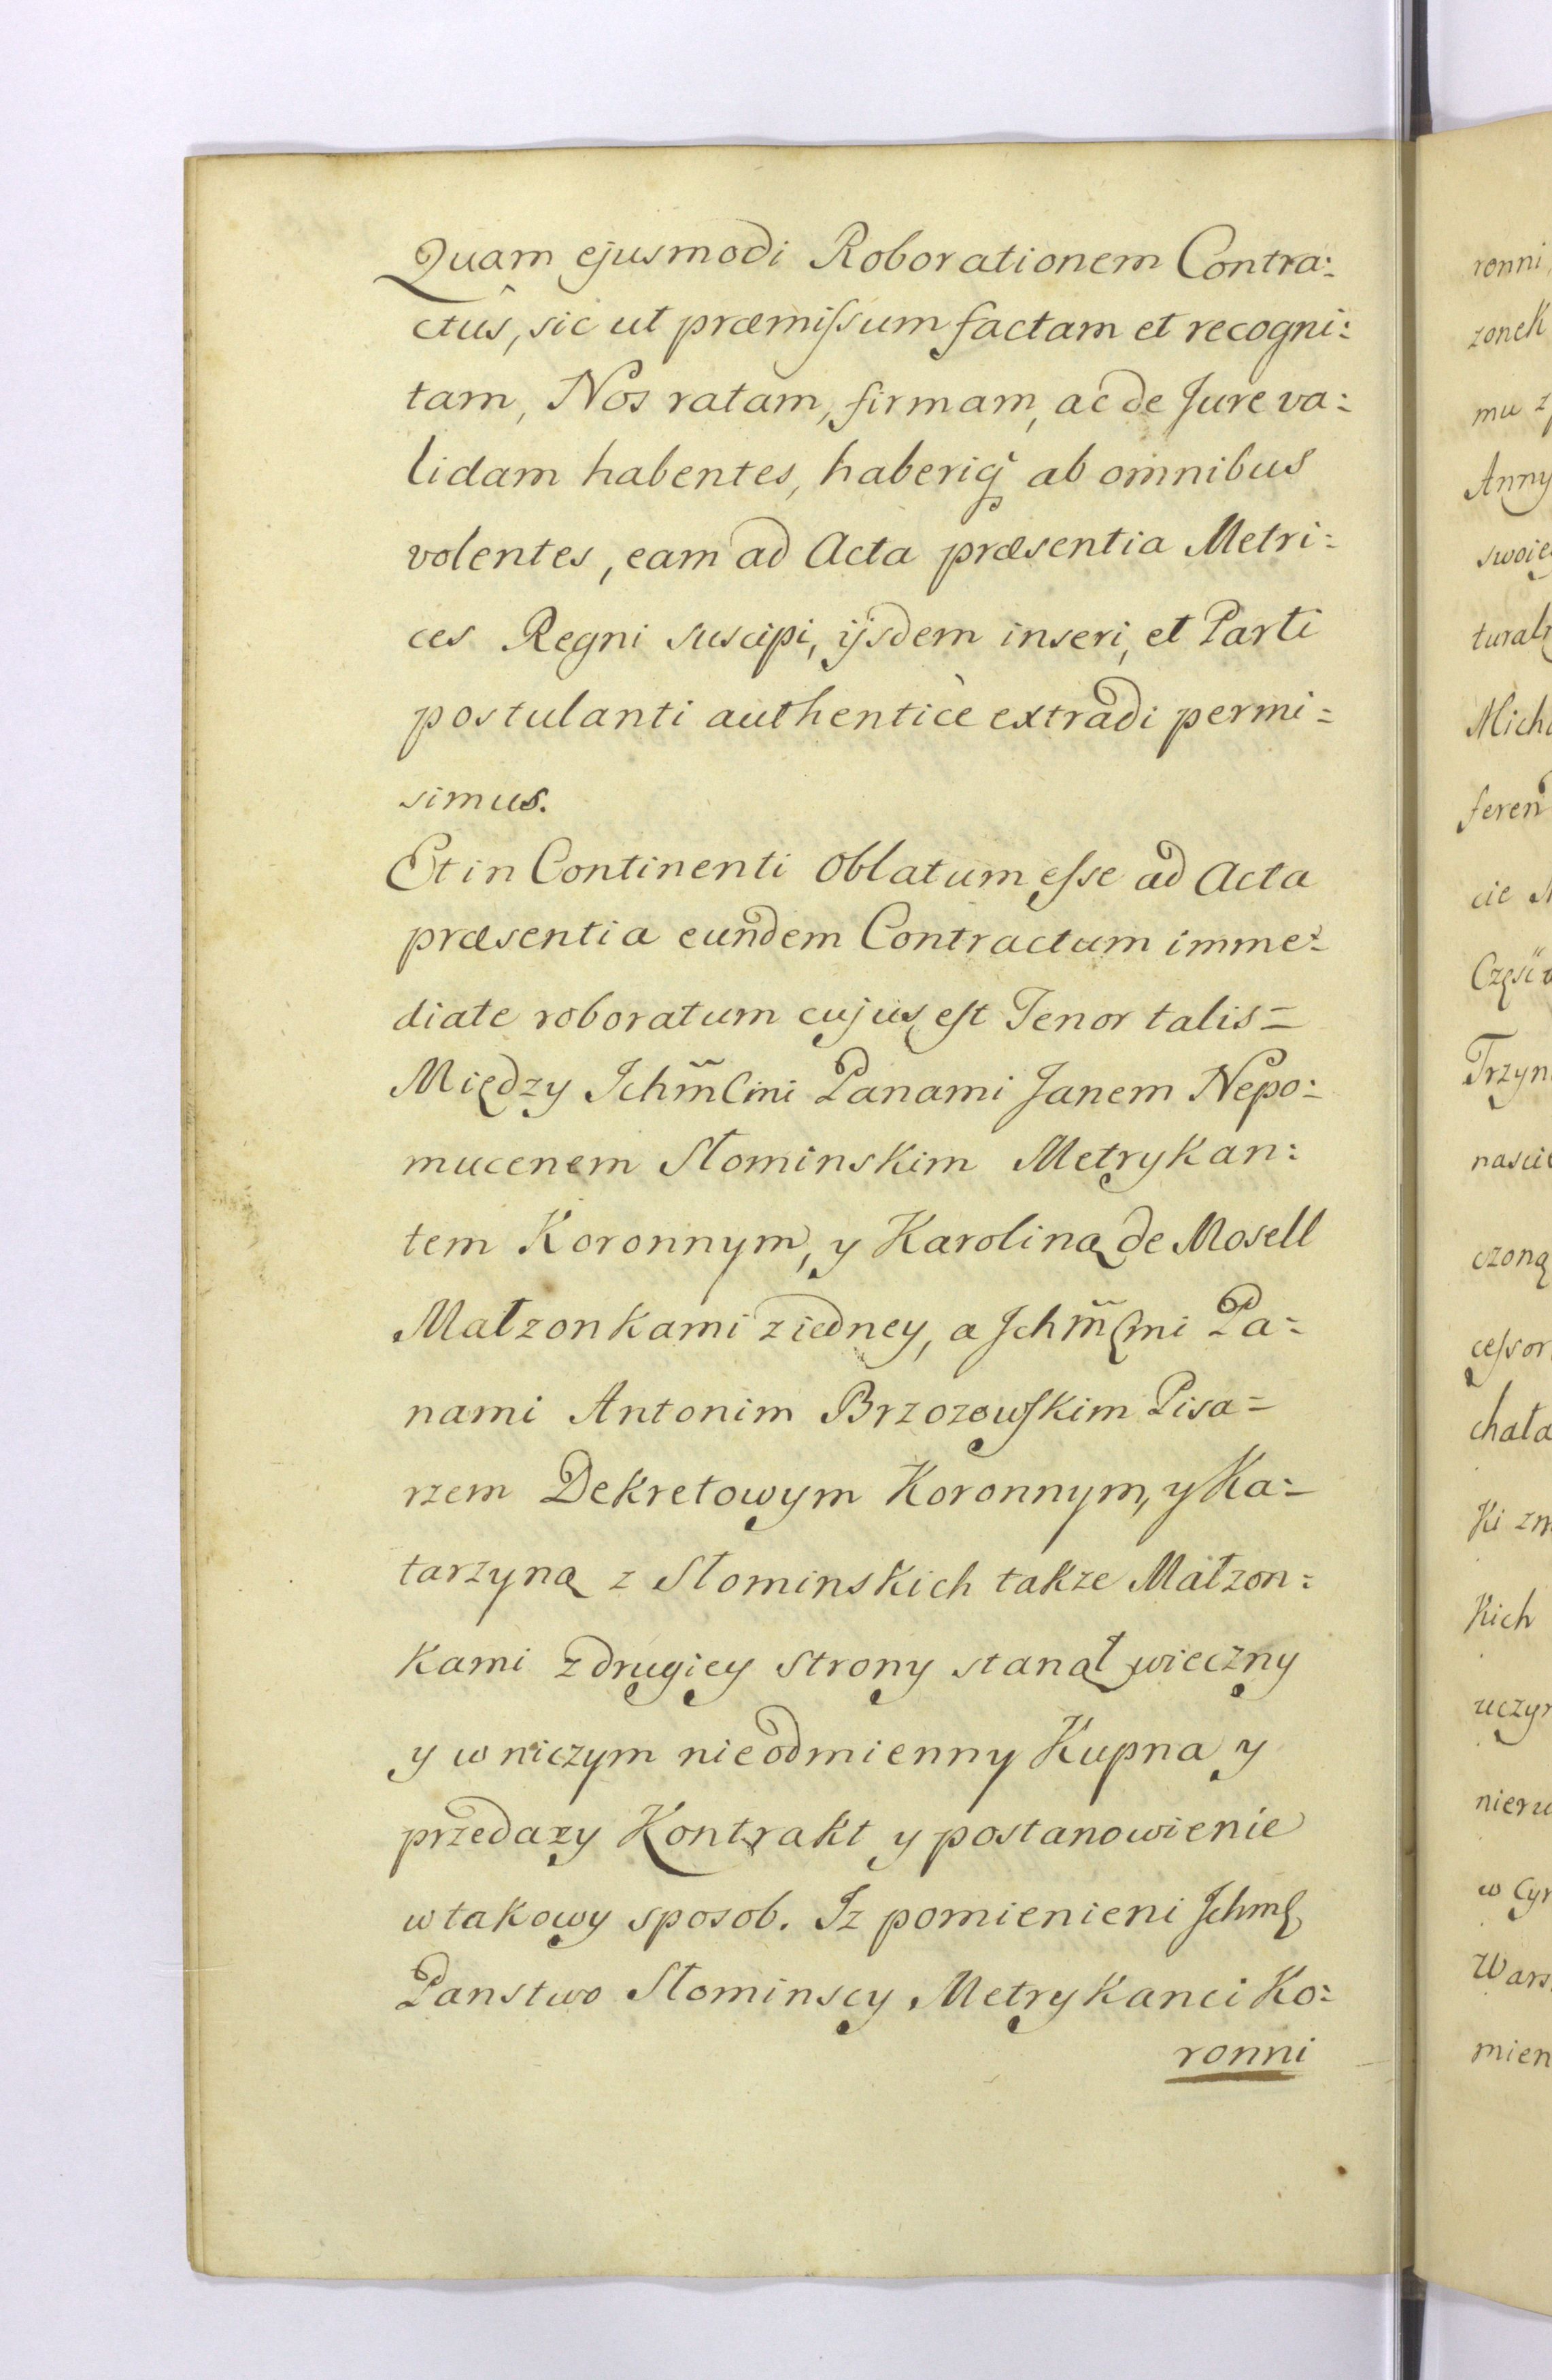 Quam ejusmodi Roborationem Contra:
ctûs, sic ut præmiſsum factam et recogni:
tam, Nos ratam, firmam, ac de Jure va:
lidam habentes, haberiq̃ ab omnibus
volentes, eam ad Acta præsentia Metri:
ces Regni suscipi, ijsdem inseri, et Parti
postulanti authenticè extradi permi=
simus.
Et in Continenti Oblatum eſse ad Acta
præsentia eundem Contractum imme:
diate roboratum cujus eſt Tenor talis=
Między Ichm̃Cmi Panami Janem Nepo:
mucenem Słominskim Metrykan:
tem Koronnym, y Karoliną de Mosell
Małzonkami z iedney, a Jchm̃Cmi Pa=
nami Antonim Brzozowſkim Pisa=
rzem Dekretowym Koronnym, y Ka=
tarzyną z Słominskich takze Małzon:
kami z drugiey strony stanął wieczny
y w niczym nieodmienny Kupna y
przedazy Kontrakt y postanowienie
w takowy sposob. Iz pomienieni JchmC
Panstwo Słominscy Metrykanci Ko:
ronni
ronni
zonek
mu
Anny
swoie
Mich
feren
cie
Trzyn
nascie
czoną
ceſsor
chała
ki
kich
uczyn
nieru
w Cyr
Wars
mien